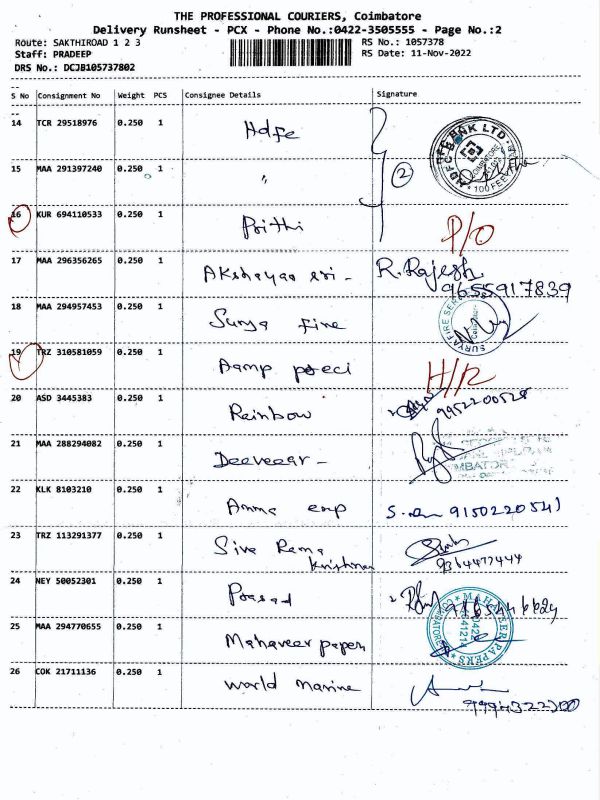 THE PROFESSIONAL COURIERS, Coimbatore
Delivery Runsheet - PCX - Phone No.:0422-3505555 - Page No.:2
Route: SAKTHIROAD 1 2 3
RS No.: 1057378
Staff: PRADEEP
RS Date: 11-Nov-2022
DRS No.: DCJB105737802
S No Consignment No Weight PCS Consignee Details Signature
14 TCR 29518976 0.250 1 Hdfc
HDFC BANK LTD
COIMBATORE
15 MAA 291397240 0.250 1 "
2
100 FEET
16 KUR 694110533 0.250 1 Prithi P/O
17 MAA 296356265 0.250 1 Akshayaa sri - R. Rajesh
9655917839
18 MAA 294957453 0.250 1 Surya fire
SURYA FIRE
19 TRZ 310581059 0.250 1 Aamp preci H/R
20 ASD 3445383 0.250 1 Rainbow 9952200528
21 MAA 288294082 0.250 1 Deeveear -
22 KLK 8103210 0.250 1 Amma enp 9150220541
23 TRZ 113291377 0.250 1 Siva Rama
Krishnan 9364477444
24 NEY 50052301 0.250 1 Prasad
25 MAA 294770655 0.250 1 Mahaveer papers
MAHAVEER PAPERS
26 COK 21711136 0.250 1 World Marine